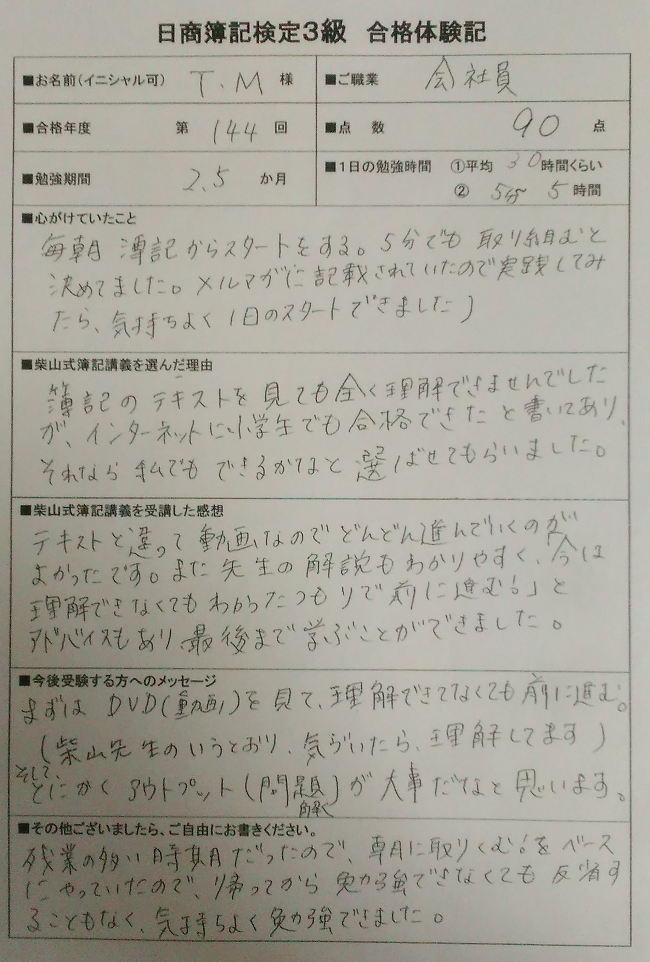 日商簿記検定3級 合格体験記
■お名前(イニシャル可) T.M 様 ■ご職業 会社員
■合格年度 第 144 回 ■点 数 90 点
■勉強期間 2.5 か月 ■1日の勉強時間 ①平均 30時間くらい
② 5分 5時間
■心がけていたこと
毎朝 簿記からスタートをする。5分でも 取り組むと
決めてました。メルマガに記載されていたので実践してみ
たら、気持ちよく1日のスタートできました)
■柴山式簿記講義を選んだ理由
簿記の テキストを 見ても全く理解できませんでした
が、インターネットに小学生でも合格できた と書いてあり、
それなら 私でも できるかなと 選ばせてもらいました。
■柴山式簿記講義を受講した感想
テキストと違って動画なのでどんどん進んでいくのが
よかったです。また先生の解説もわかりやすく、「今は
理解できなくてもわかったつもりで前に進む!」と
アドバイスもあり 最後まで学ぶことができました。
■今後受験する方へのメッセージ
まずは DVD(動画)を見て、理解できてなくても前に進む。
(柴山先生のいうとおり、気づいたら、理解してます)
そして、
とにかく アウトプット(問題)が大事だなと思います。
解く
■その他ございましたら、ご自由にお書きください。
残業の多い時期だったので、朝に取りくむ!をベース
にやっていたので、帰ってから勉強できなくても反省す
ることもなく、気持ちよく勉強できました。